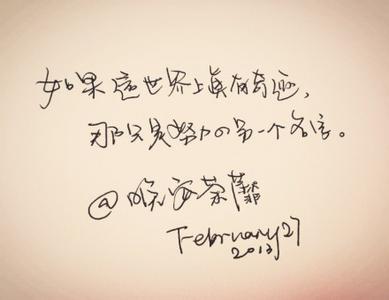 如果這世界上真有奇迹，
那只是努力の另一个名字。
@晚安荼蘼
February 27
2013